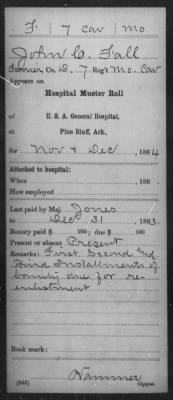 F | 7 Cav | Mo.
John C. Fall
Farrier Co. D, 7 Reg't Mo. Cav
Appears on
Hospital Muster Roll
of U. S. A. General Hospital,
at Pine Bluff, Ark.,
for Nov & Dec, 1864
Attached to hospital:
When 186 .
How employed
Last paid by Maj. Jones
to Dec 31, 1863.
Bounty paid $ 100; due $ 100
Present or absent Present
Remarks: First, Second and
Third Installments of
bounty due for re-
enlistment
Book mark:
Hammer
(343) Copyist.